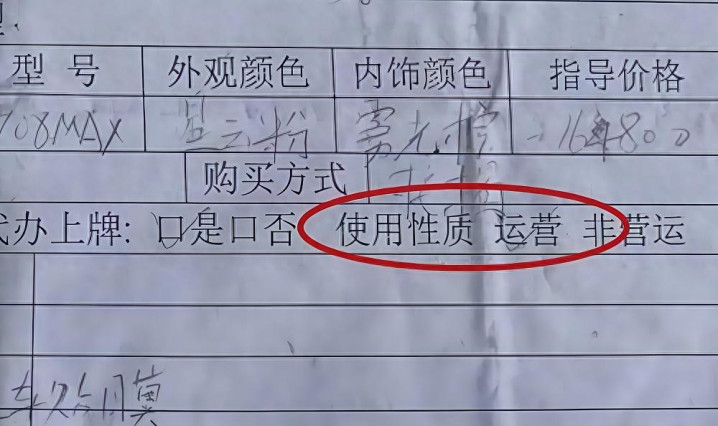 型 号 外观颜色 内饰颜色 指导价格
708MAX 星云粉 雾光棕 164800
购买方式
代办上牌: 口是口否 使用性质 运营 非营运
车贴膜